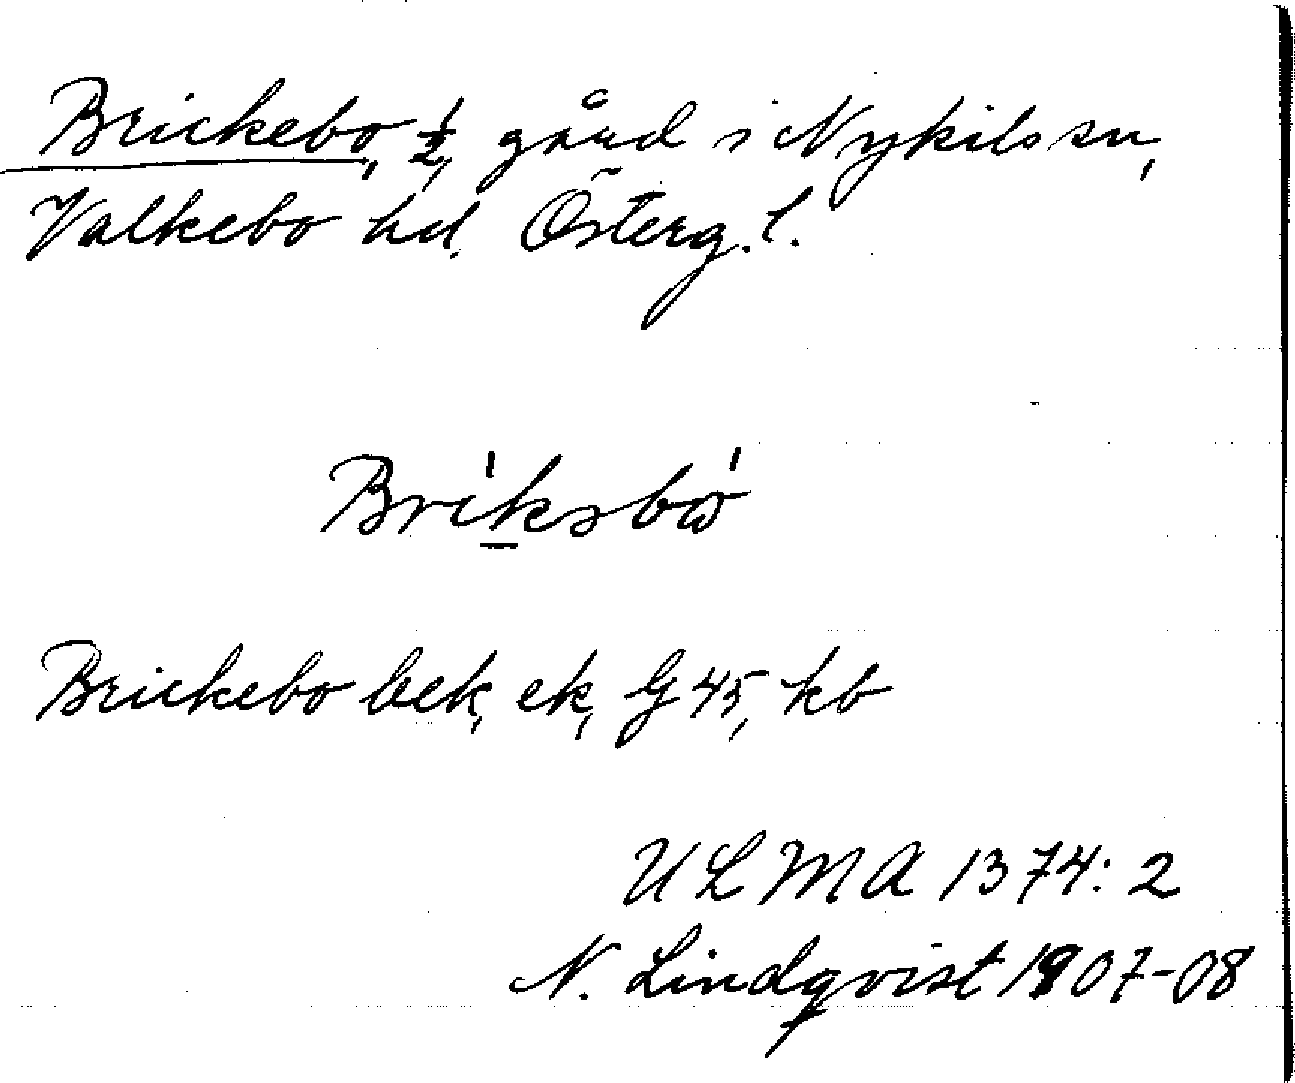 Brickebo, 1/2, gård i Nykils sn,
Valkebo hd. Österg. l.
Bri̱'ksbω'
Brickebo bek, ek, G 45, kb
ULMA 1374: 2
N. Lindqvist 1907-08